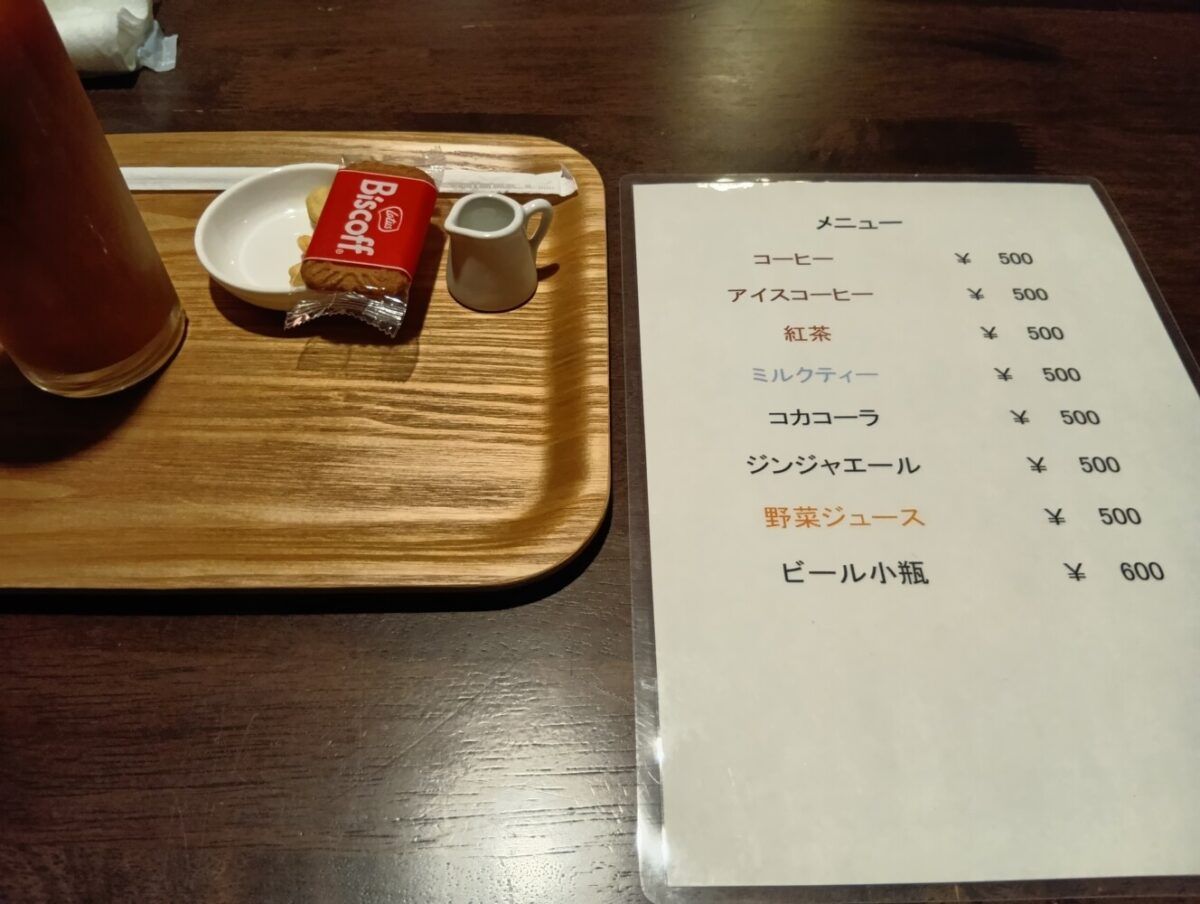 Lotus
Biscoff
メニュー
コーヒー ¥ 500
アイスコーヒー ¥ 500
紅茶 ¥ 500
ミルクティー ¥ 500
コカコーラ ¥ 500
ジンジャエール ¥ 500
野菜ジュース ¥ 500
ビール小瓶 ¥ 600